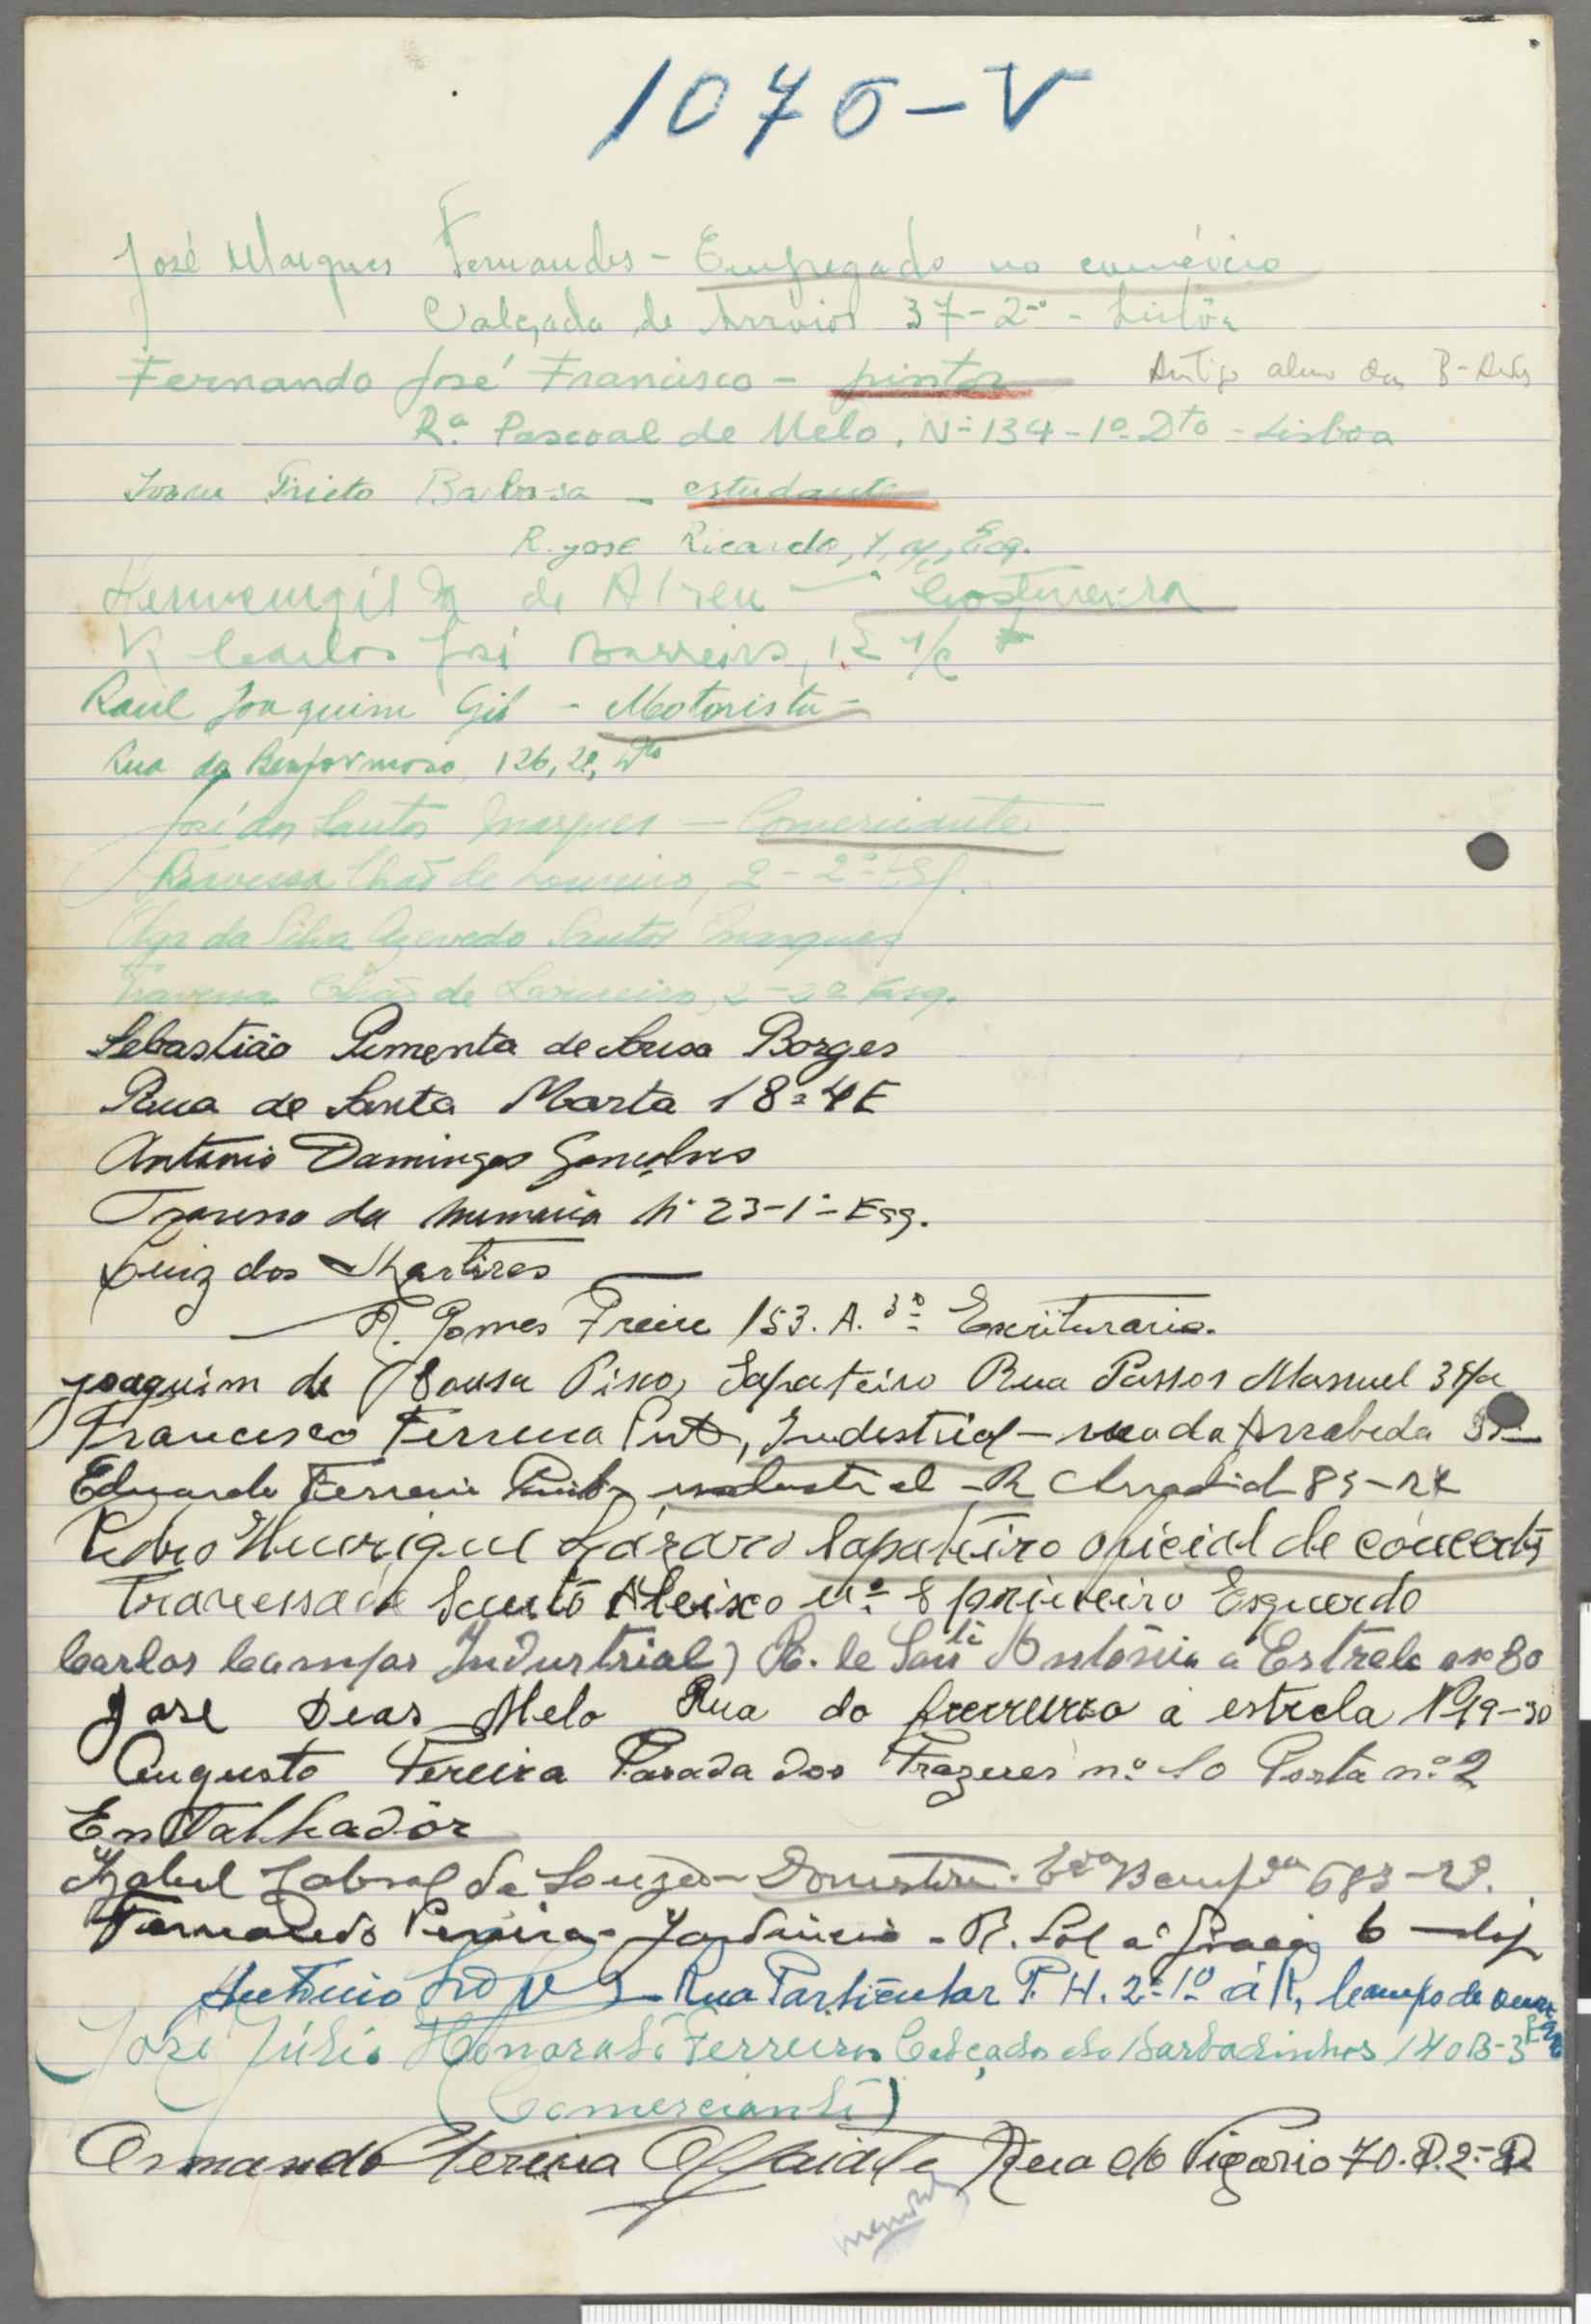 1076-V
José Marques Fernandes - Empregado no comércio
Calçada de Arroios 37-2º - Lisbôa
Fernando José Francisco - pintor Antigo aluno das B-Artes
R.ª Pascoal de Melo, Nº 134-1º Dto - Lisboa
Prieto Barbosa - estudante
R. José Ricardo, 7, Esq.
de Abreu - Costureira
R Carlos José Barreiros, 12 r/c
Raul Joaquim Gil - Motorista -
Rua do Benformoso, 126, 2º, Dto
José dos Santos Marques - Comerciante
Travessa Chão de Loureiro, 2-2º Esq.
Olga da Silva Azevedo Santos Marques
Travessa Chão do Loureiro, 2-2º Esq.
Sebastião Pimenta de Sousa Borges
Rua de Santa Marta 18=4E
António Domingos Gonçalves
da nº 23-1º-Esq.
Luiz dos Martires
R. Gomes Freire 153. A. 3º Escriturario.
Joaquim de Sousa Pisco, Sapateiro Rua Passos Manuel
Francisco Ferreira Pinto, Industrial - rua da Arrabida
Eduardo Ferreira Pinto industrial - R
Pedro Henrique Lázaro Sapateiro oficial de concertos
Travessa de Santo Aleixo nº 8 primeiro Esquerdo
Carlos Campos Industrial) R. de Santo António á Estrela nº 80
José Dias Melo Rua do á estrela Nº19-30
Augusto Pereira Parada dos Prazeres nº 10 Porta nº 2
Entalhadôr
Izabel Cabral de Souza - Domestica.
Fernando Pereira - R. Sol á Graça 6
António Rua Particular P. H. 2=1º á R, Campo de
José Júlio Honorato Ferreira Calçada dos Barbadinhos 140B-3º
(Comerciante)
Armando Pereira Rua do Vigario 70. P. 2º D